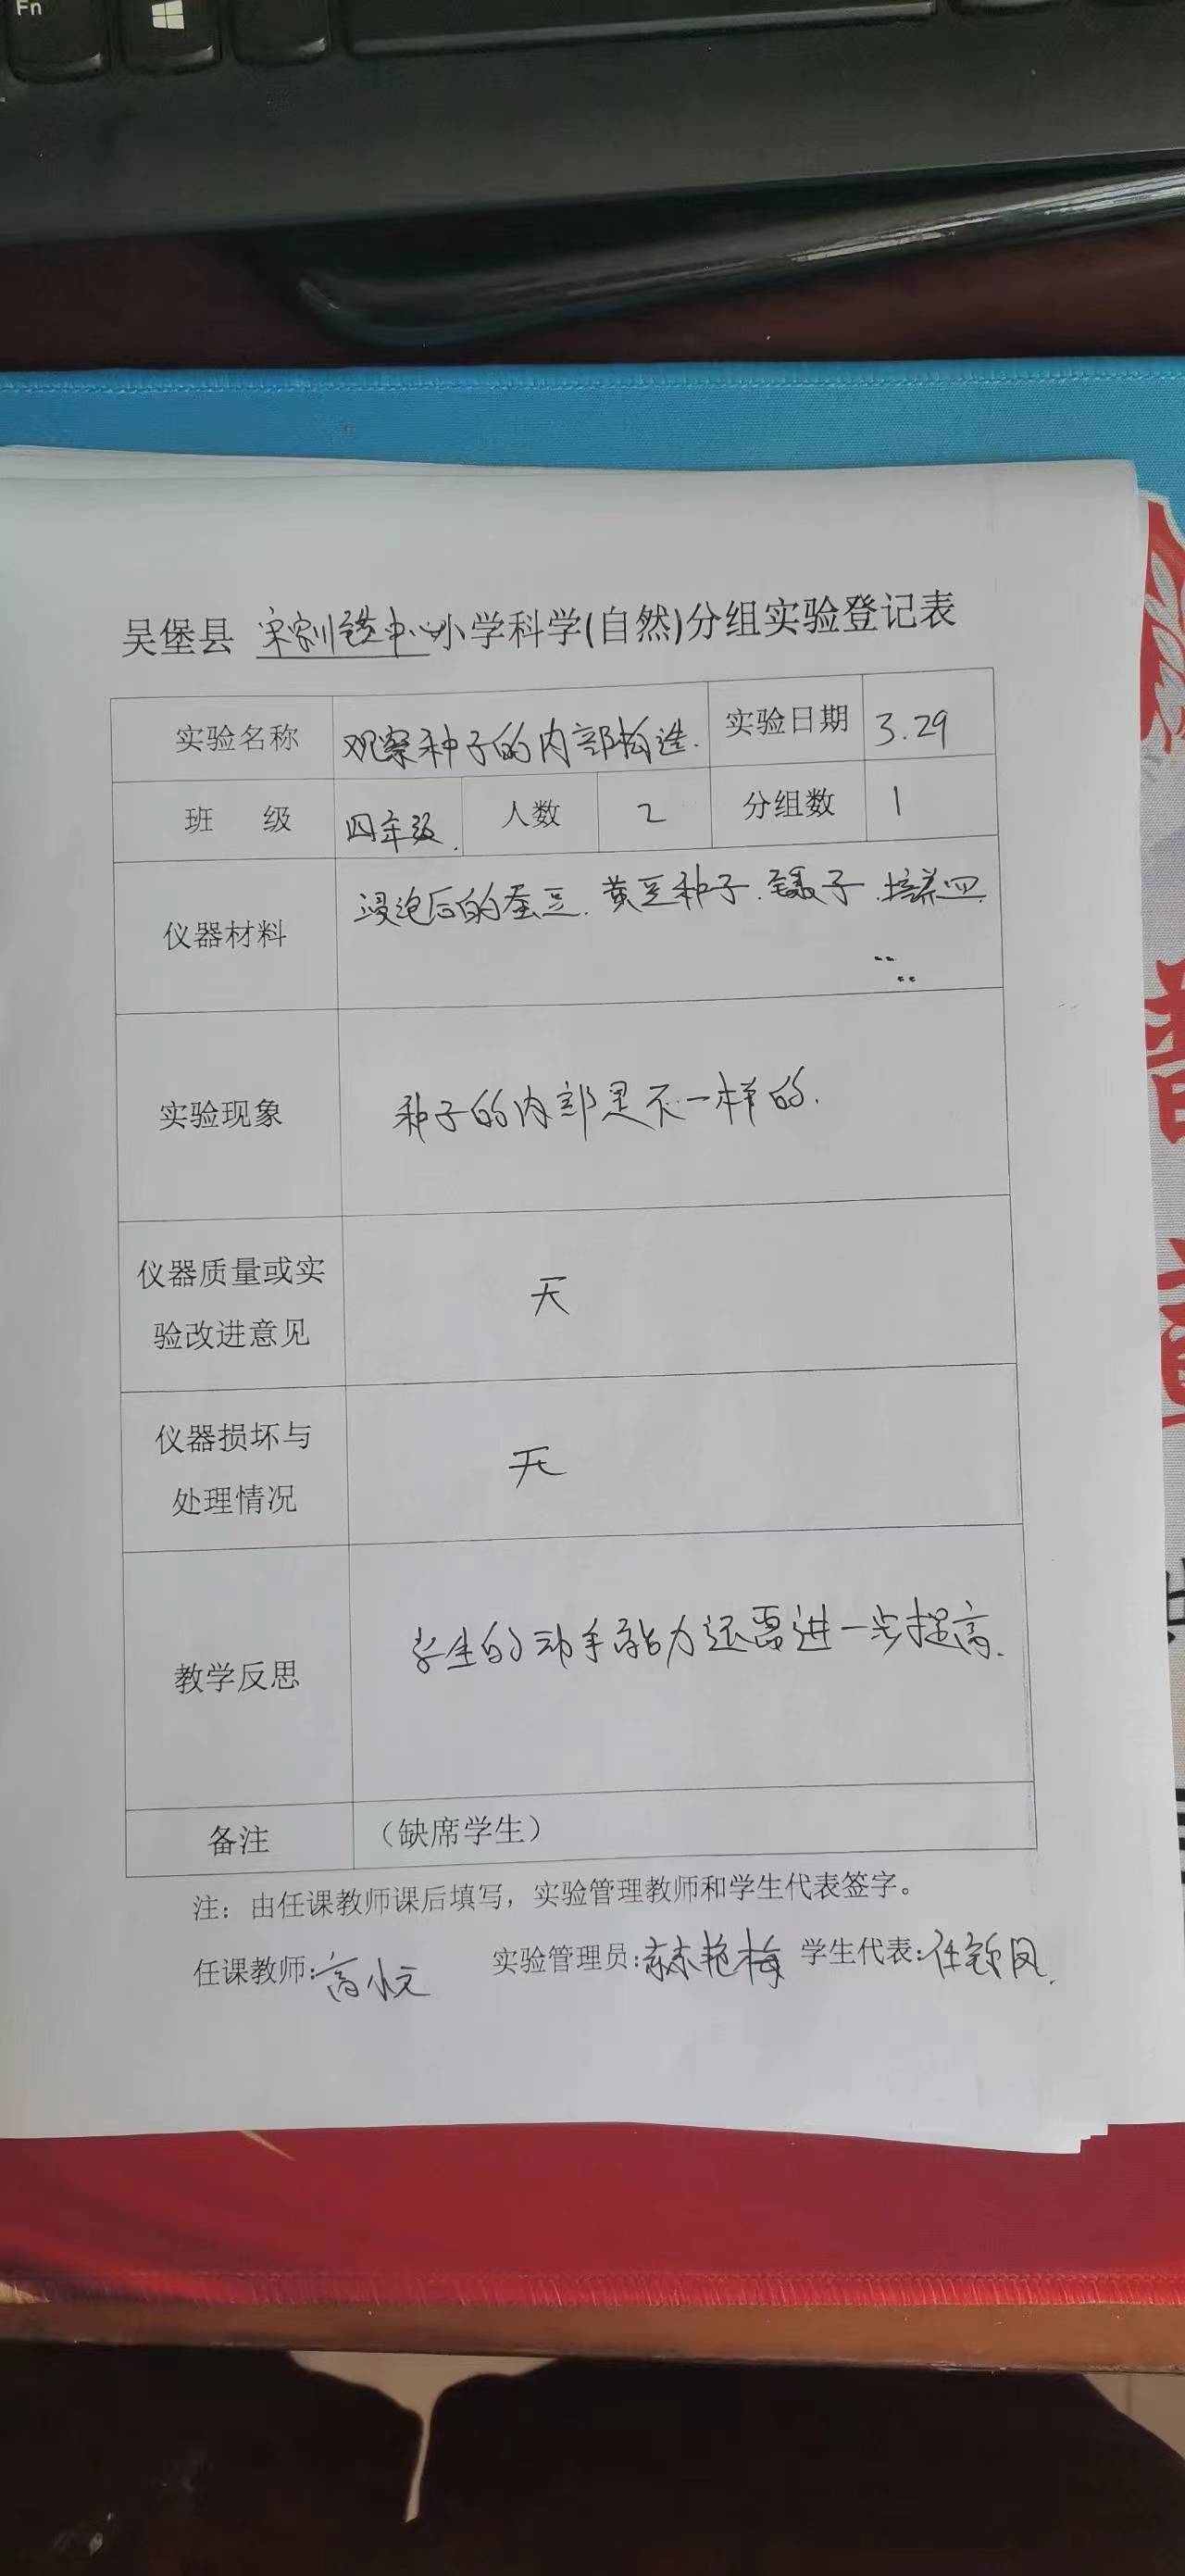 Fn
吴堡县 宋家川镇中心小学科学(自然)分组实验登记表
实验名称 观察种子的内部构造. 实验日期 3.29
班 级 四年级. 人数 2 分组数 1
仪器材料 浸泡后的蚕豆. 黄豆种子. 镊子. 培养皿
实验现象 种子的内部是不一样的.
仪器质量或实
验改进意见 无
仪器损坏与
处理情况 无
教学反思 学生的动手能力还需进一步提高.
备注 （缺席学生）
注：由任课教师课后填写，实验管理教师和学生代表签字。
任课教师: 高 实验管理员: 艳梅 学生代表: 任